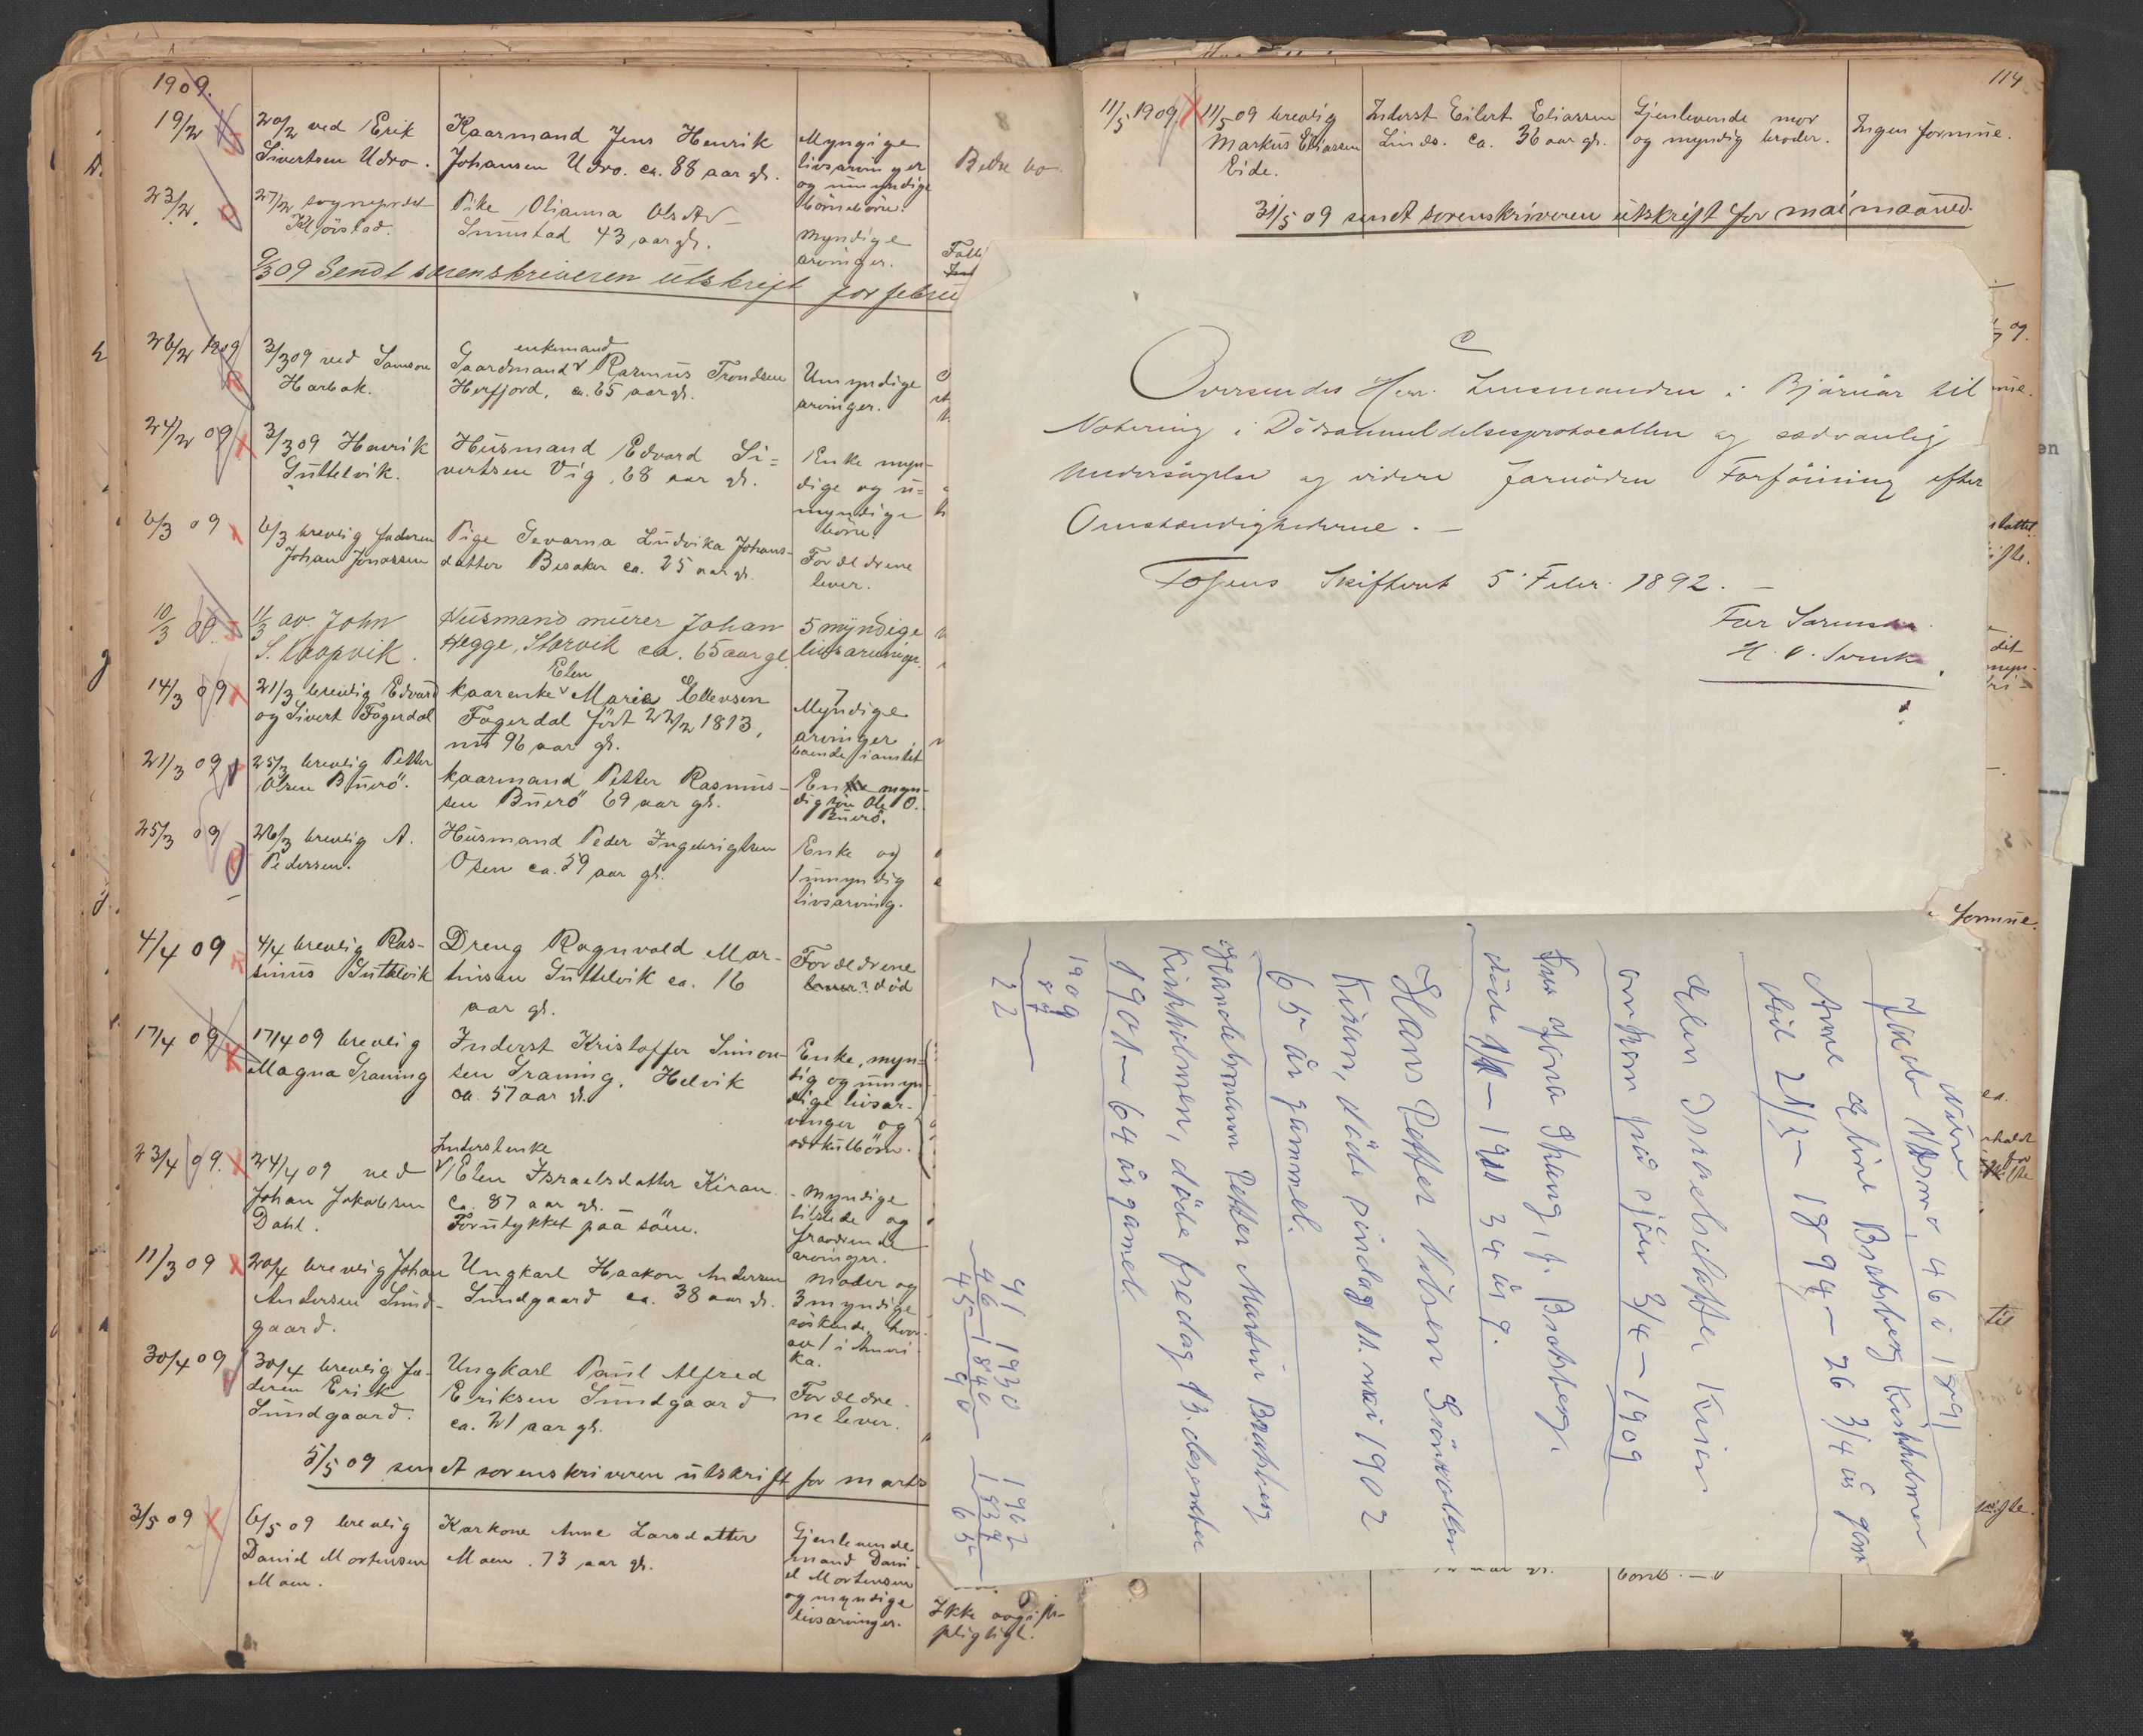 1909.
19/2
20/2 ved Erik
Sivertsen Udro.
Kaarmand Jens Henrik
Johansen Udro. ca. 88 aar gl.
Myngige
livsarvinger
og umyndige
børnebørn.
23/2.
27/2 sogneprest
Pike Olianna Olsdtr
Sumstad 43 aar gl.
Myndige
arvinger.
9/3 09 Sendt sorenskriveren utskrift for febru
26/2 1909
3/3 09 ved Samson
Harbak.
enkemand
Gaardmand Rasmus Trondsen
Hopfjord, ca. 65 aar gl.
Umyndige
arvinger.
24/2 09
3/3 09 Henrik
Guttelvik.
Husmand Edvard Si=
vertsen Vig, 68 aar gl.
Enke myn-
dige og u=
myndige
børn.
6/3 09
6/3 brevlig faderen
Johan Jonassen
Pige Gevarna Ludvika Johans-
datter Besaker ca. 25 aar gl.
Forældrene
lever.
10/3 09.
11/3 av John
S. Kropvik.
Husmand murer Johan
Hegge, Storvik ca. 65 aar gl.
5 myndige
livsarvinger.
14/3 09
21/3 brevlig Edvard
og Sivert Fagerdal
Elen
Kaarenke Marie Ellevsen
Fagerdal født 22/2 1813,
nu 96 aar gl.
7
Myndige
arvinger,
boende i amtet
21/3 09
25/3 brevlig Petter
Olsen Buerö.
Kaarmand Petter Rasmus-
sen Buerö 69 aar gl.
Enke myn-
dig søn Ole O.
Buerö.
25/3 09
26/3 brevlig A.
Pedersen.
Husmand Peder Ingebrigtsen
Osen ca. 59 aar gl.
Enke og
1 umyndig
livsarving.
4/4 09
4/4 brevlig Ras-
mus Guttelvik
Dreng Ragnvald Mar-
tinsen Guttelvik ca. 16
aar gl.
Forældrene
lever? død
17/4 09
17/4 09 brevlig
Magna Graning
Inderst Kristoffer Simon-
sen Graning, Helvik
ca. 57 aar gl.
Enke, myn-
dig og umyn
dige livsar-
vinger og
særkulbørn.
23/4 09.
24/4 09 ved
Johan Jakobsen
Dahl.
Inderstenke
Elen Israelsdatter Kiran
ca. 87 aar gl.
Forulykket paa søen.
Myndige
tilstede og
fraværende
arvinger.
11/3 09
20/4 brevlig Johan
Andersen Sund-
gaard.
Ungkarl Haakon Andersen
Sundgaard ca. 38 aar gl.
Moder og
3 myndige
søskende, hvor-
av 1 i Ameri
ka.
30/4 09
30/4 brevlig fa-
deren Erik
Sundgaard.
Ungkarl Paul Alfred
Eriksen Sundgaard
ca. 21 aar gl.
Forældre
ne lever.
5/5 09 sendt sorenskriveren utskrift for marts
3/5 09
6/5 09 brevlig
David Mortensen
Moen.
Karkone Anne Larsdatter
Moen. 73 aar gl.
Gjenlevende
mand Dani-
el Mortensen
og myndige
livsarvinger.
Ikke avgifts-
pligtigt.
114
11/5 1909
11/5 09 brevlig
Markus Eliassen
Eide.
Inderst Eilert Eliassen
Linds. ca. 36 aar gl.
Gjenlevende mor
og myndig broder.
Ingen formue.
31/5 09 sendt sorenskriveren utskrift for mai maaned.
Oversendes Herr Lensmanden i Bjørnør til
Notering i Dødsanmeldelsesprotocollen og sædvanlig
Undersøgelse og videre fornøden Forføining efter
Omstændighederne. —
Fosens Skifteret 5 Febr. 1892. —
For Sorensk.
Jakob
46 i 1891
Arne Eline Bratsberg Kirkholmen
død 21/3 – 1894 – 26 3/4 år gam
Elen Israelsdatter Kiran
omkom på sjöen 3/4 – 1909
Fru Anna Strang, f. Bratsberg.
34 år g.
Hans Petter Nilsen Grönvollen
Kiran, döde söndag 11. mai 1902
65 år gammel.
Handelsmann Petter Martin Bratsberg
Kirkholmen, döde fredag 13. desember
1901 – 64 år gamel.
1909
887
22
41 1930
46 – 1840
45 – 90
1902
1837
65